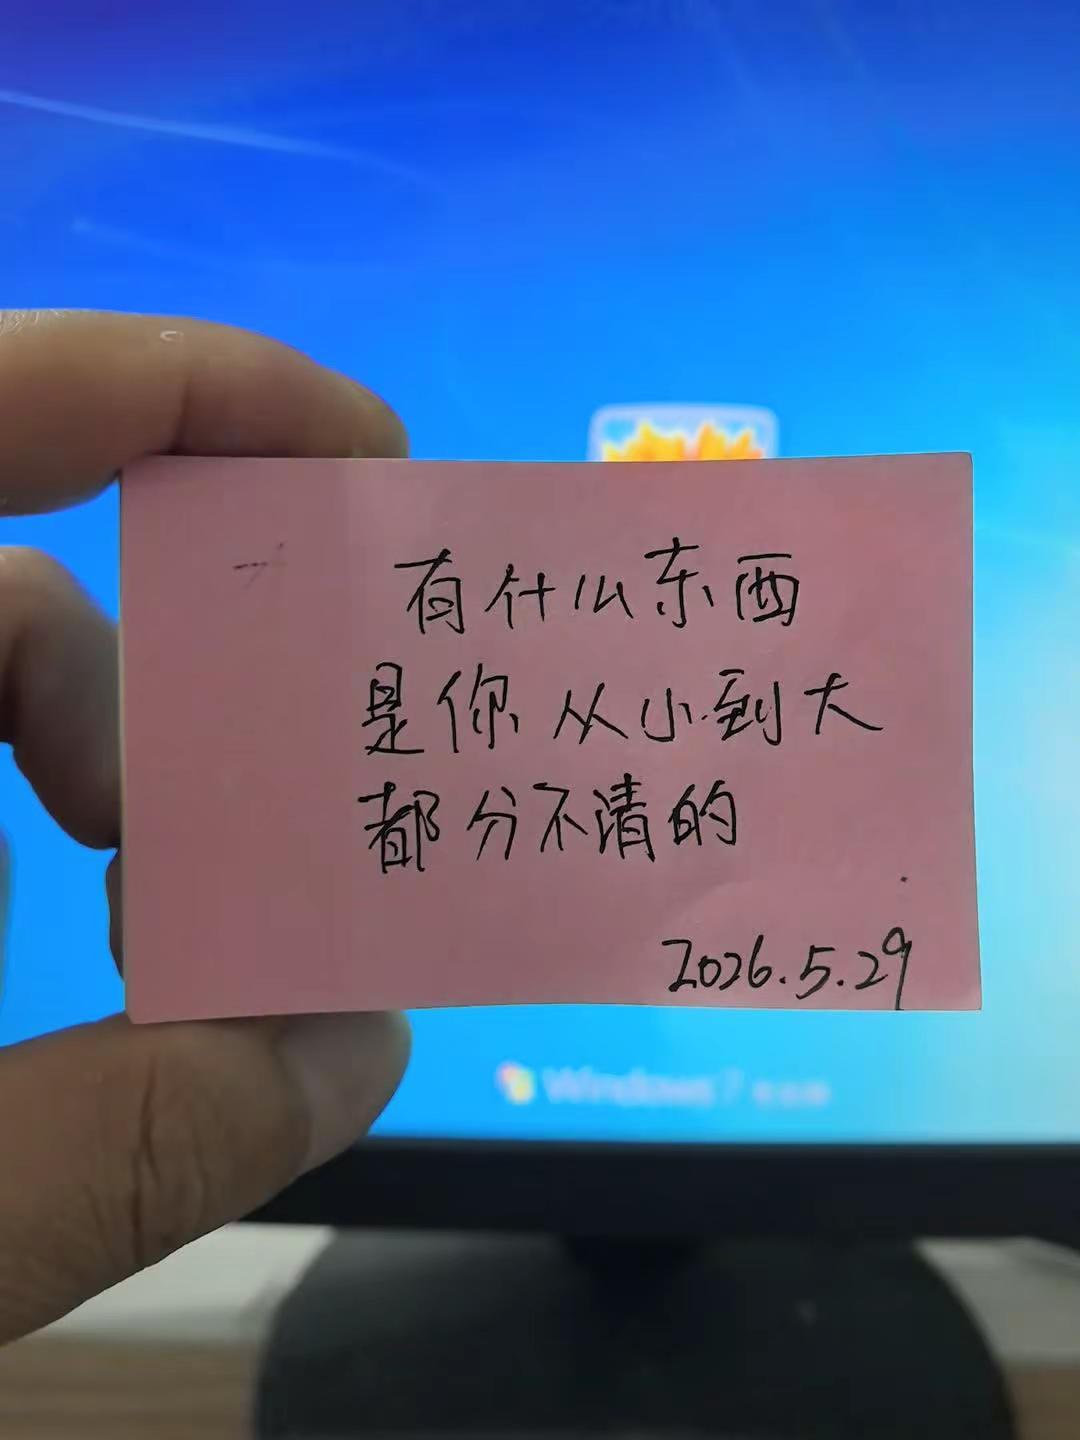 有什么东西
是你从小到大
都分不清的
2026.5.29
Windows 7